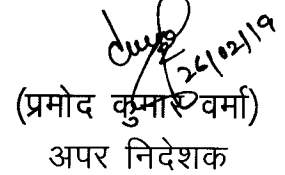 26/02/19
(प्रमोद कुमार वर्मा)
अपर निदेशक